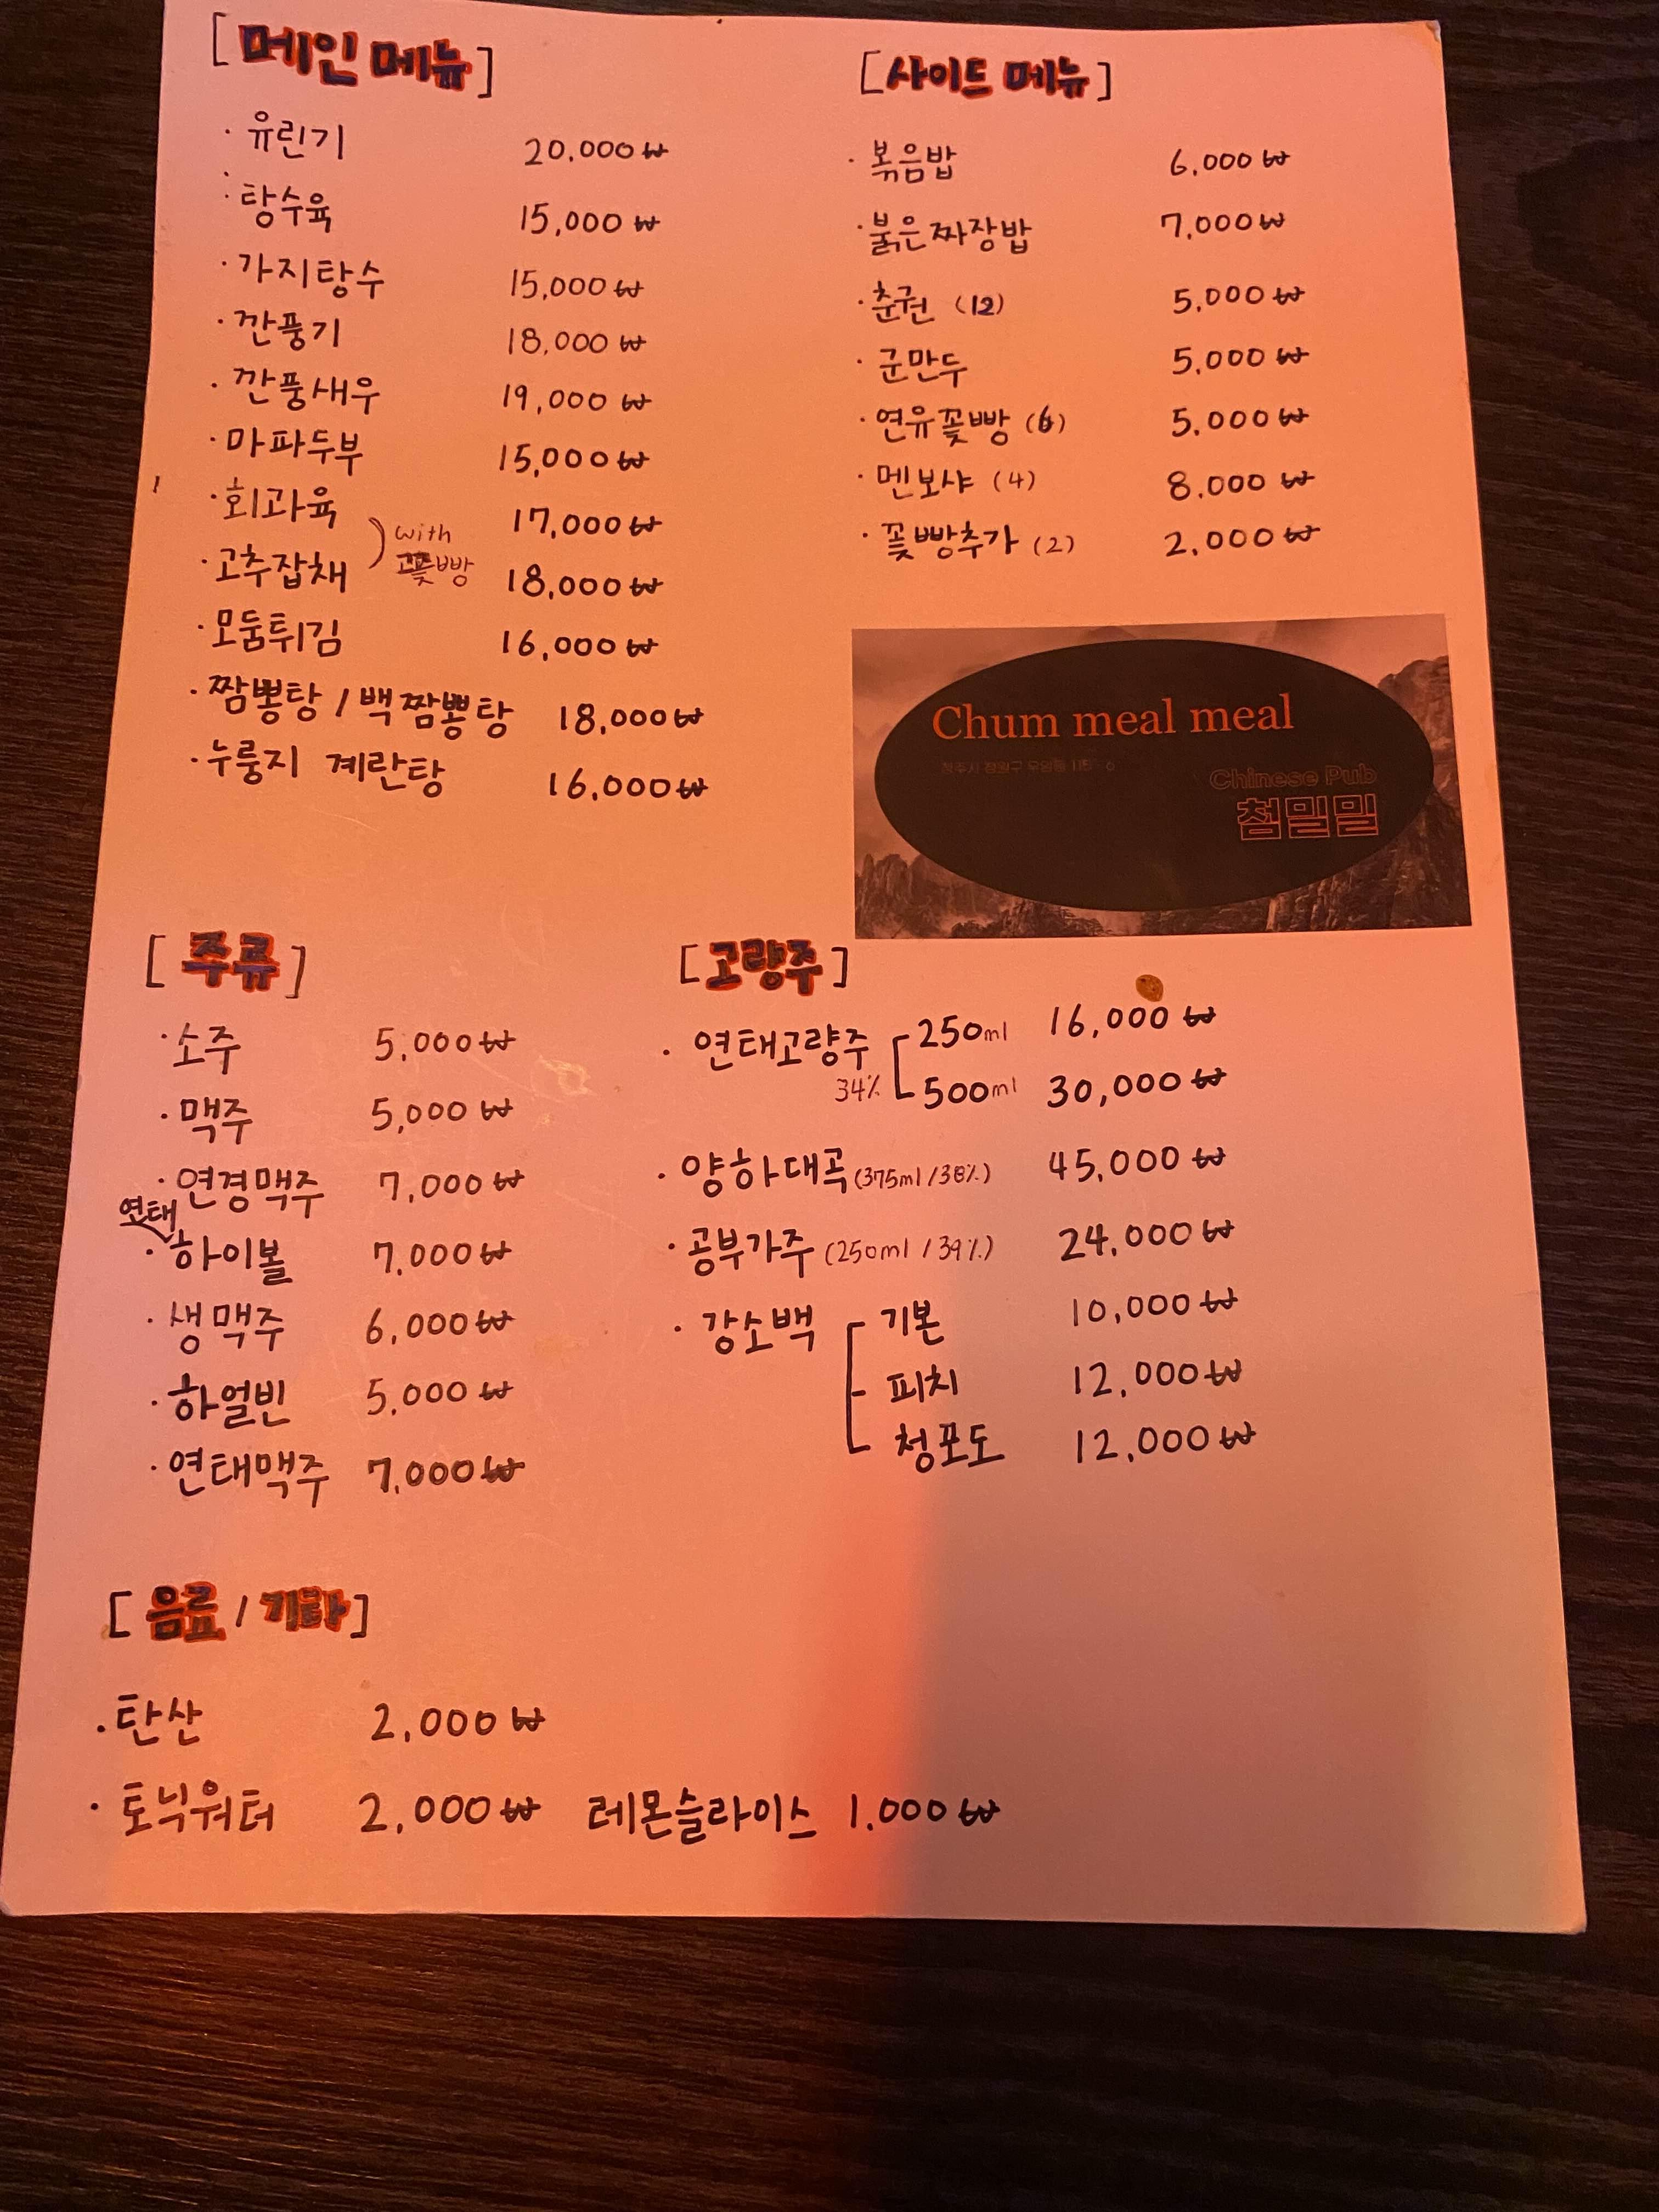 [메인 메뉴]
· 유린기 20,000₩
· 탕수육 15,000₩
· 가지탕수 15,000₩
· 깐풍기 18,000₩
· 깐풍새우 19,000₩
· 마파두부 15,000₩
· 회과육 17,000₩
with 꽃빵
· 고추잡채 18,000₩
· 모둠튀김 16,000₩
· 짬뽕탕 / 백짬뽕탕 18,000₩
· 누룽지 계란탕 16,000₩
[사이드 메뉴]
· 볶음밥 6,000₩
· 붉은짜장밥 7,000₩
· 춘권 (12) 5,000₩
· 군만두 5,000₩
· 연유꽃빵 (6) 5,000₩
· 멘보샤 (4) 8,000₩
· 꽃빵추가 (2) 2,000₩
Chum meal meal
청주시 청원구
Chinese Pub
첨밀밀
[주류]
· 소주 5,000₩
· 맥주 5,000₩
· 연경맥주 7,000₩
· 연태하이볼 7,000₩
· 생맥주 6,000₩
· 하얼빈 5,000₩
· 연태맥주 7,000₩
[고량주]
· 연태고량주 34% 250ml 16,000₩
500ml 30,000₩
· 양하대곡 (375ml/38%) 45,000₩
· 공부가주 (250ml/39%) 24,000₩
· 강소백 기본 10,000₩
피치 12,000₩
청포도 12,000₩
[음료/기타]
· 탄산 2,000₩
· 토닉워터 2,000₩ 레몬슬라이스 1.000₩